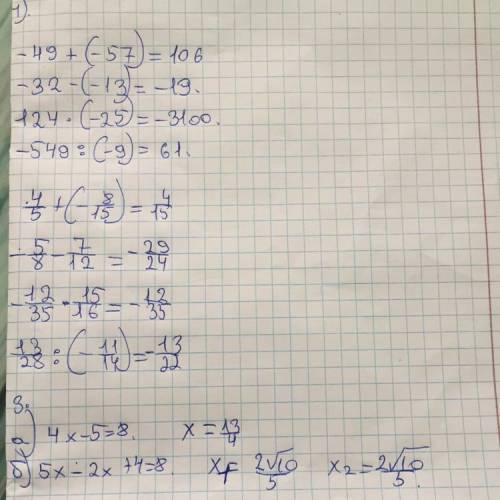 1).
-49 + (-57) = 106
-32 - (-13) = -19.
124 · (-25) = -3100.
-549 : (-9) = 61.
4/5 + (-8/15) = 4/15
-5/8 - 7/12 = -29/24
-12/35 · 15/16 = -12/35
13/28 : (-11/14) = -13/22
3.
а) 4x-5=8. x = 13/4
б) 5x - 2x +4=8. x₁ = 2√10/5 x₂ = 2√10/5.